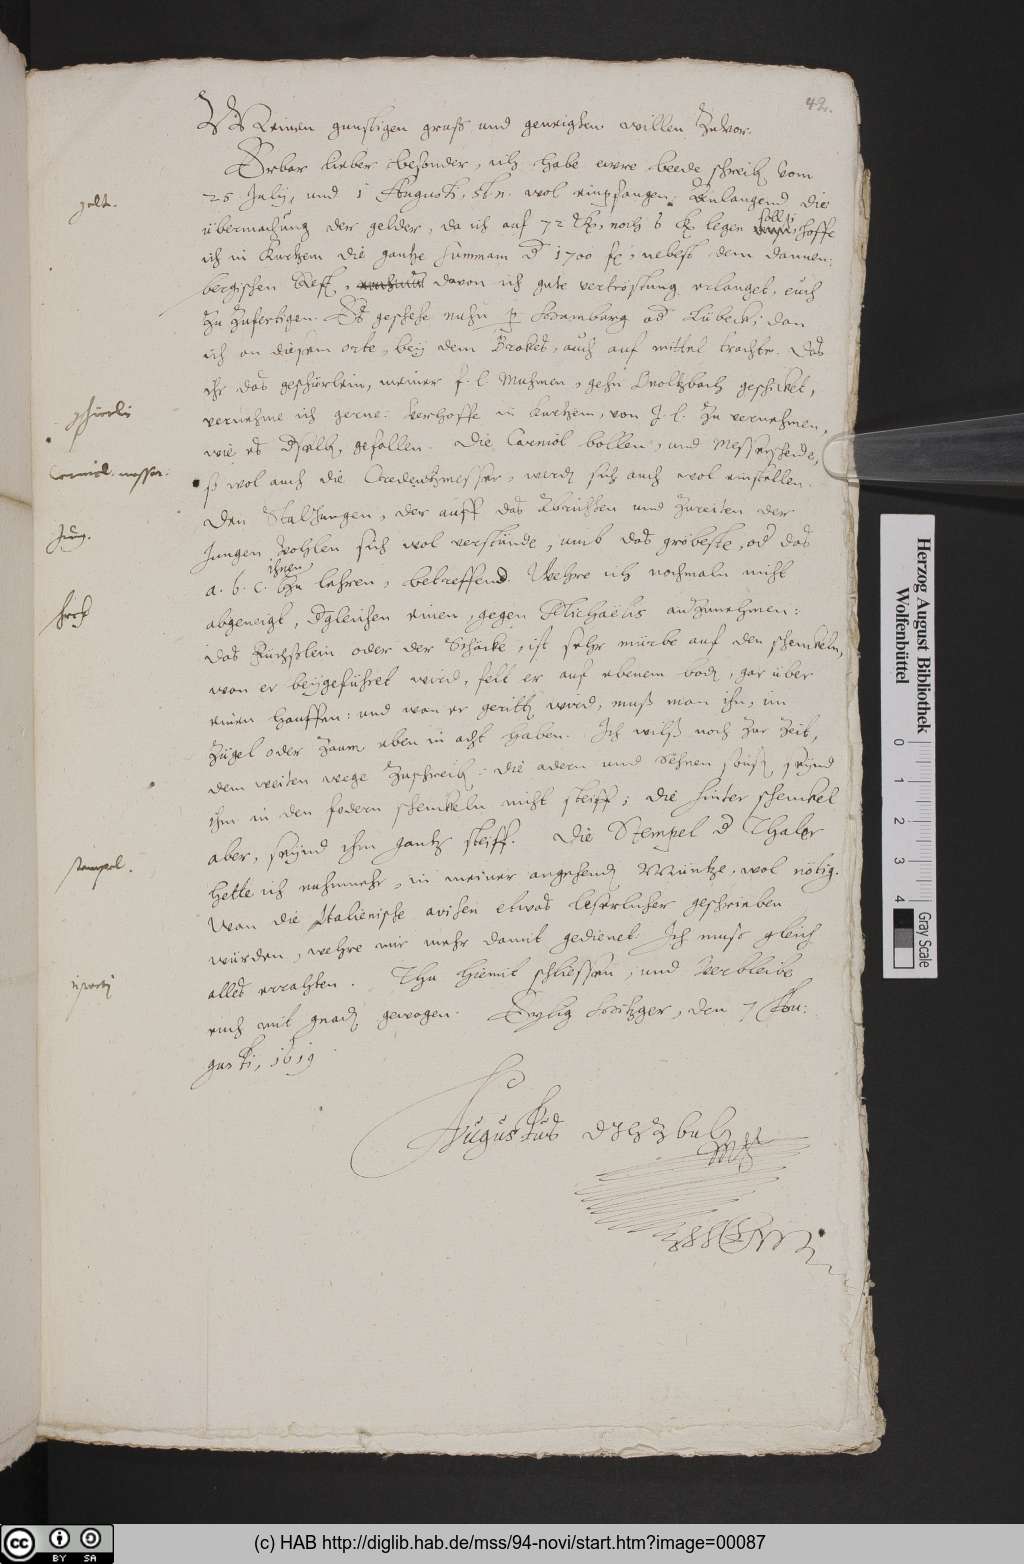 42.
Meinen gunstigen gruß und geneigten willen Zuvor.
Erbar lieber besonder, ich habe ewre beede schreib: vom
25 Julij, und 1 Augusti, st. n. wol empfangen. Anlangend die
gelt.
übermachung der gelder, da ich auf 72 noch 6 legen solte, hoffe
ich in Kurtzem die gantze summam d 1700 nebest dem dannen:
bergischen Rest, davon ich gute vertröstung erlanget, euch
Zu Zufertigen. Es geschehe nuhn p Hamburg od Lübeck, dan
ich an diesem orte, beij dem Brokes, auch auf mittel trachte. Das
ihr das geschirlein, meiner f. l. Muhmen, gehn geschicket,
vernehme ich gerne: verhoffe in kurtzem, von J. l. Zu vernehmen,
wie es gefallen. Die Carniol bollen, und Messerscheide,
so wol auch die Credentzmesser, werd sich auch wol einstellen.
Den Stal Jungen, der auff das Abrichten und Zureiten der
Jung.
Jungen wol verstünde, umb das gröbeste, od das
a. b. c. ihnen Zu lehren, betreffend. Wehre ich nochmaln nicht
abgeneigt, dgleichen einen, gegen Michaëlis anzunehmen:
das Füchslein oder der Schecke, ist sehr mürbe auf den schenkeln,
wan er beijgeführet wird, felt er auf ebenem bod, gar über
einen hauffen: und wan er geritt wird, muß man ihn, im
Zügel oder Zaum eben in acht haben. Ich wilß noch Zur Zeit,
dem weiten wege Zuschreib: die adern und Sehnen sonst seynd
ihm in den fodern schenkeln nicht steiff; die hinter schenkel
aber, seynd ihm gantz steiff. Die Stempel d Thaler
stempel.
hette ich nuhnmehr, in meiner angehend Müntze, wol nötig.
Wan die Italienische avisen etwas leserlicher geschrieben
würden, wehre mir mehr damit gedienet. Ich muß gleich
alles errahten. Thu hiemit schliessen, und verbleibe
euch mit gnad gewogen. Eylig Hitzger, den 7 Au:
gusti, 1619
Augustus
Herzog August Bibliothek
Wolfenbüttel
0 1 2 3 4
Gray Scale
cc BY SA
(c) HAB http://diglib.hab.de/mss/94-novi/start.htm?image=00087